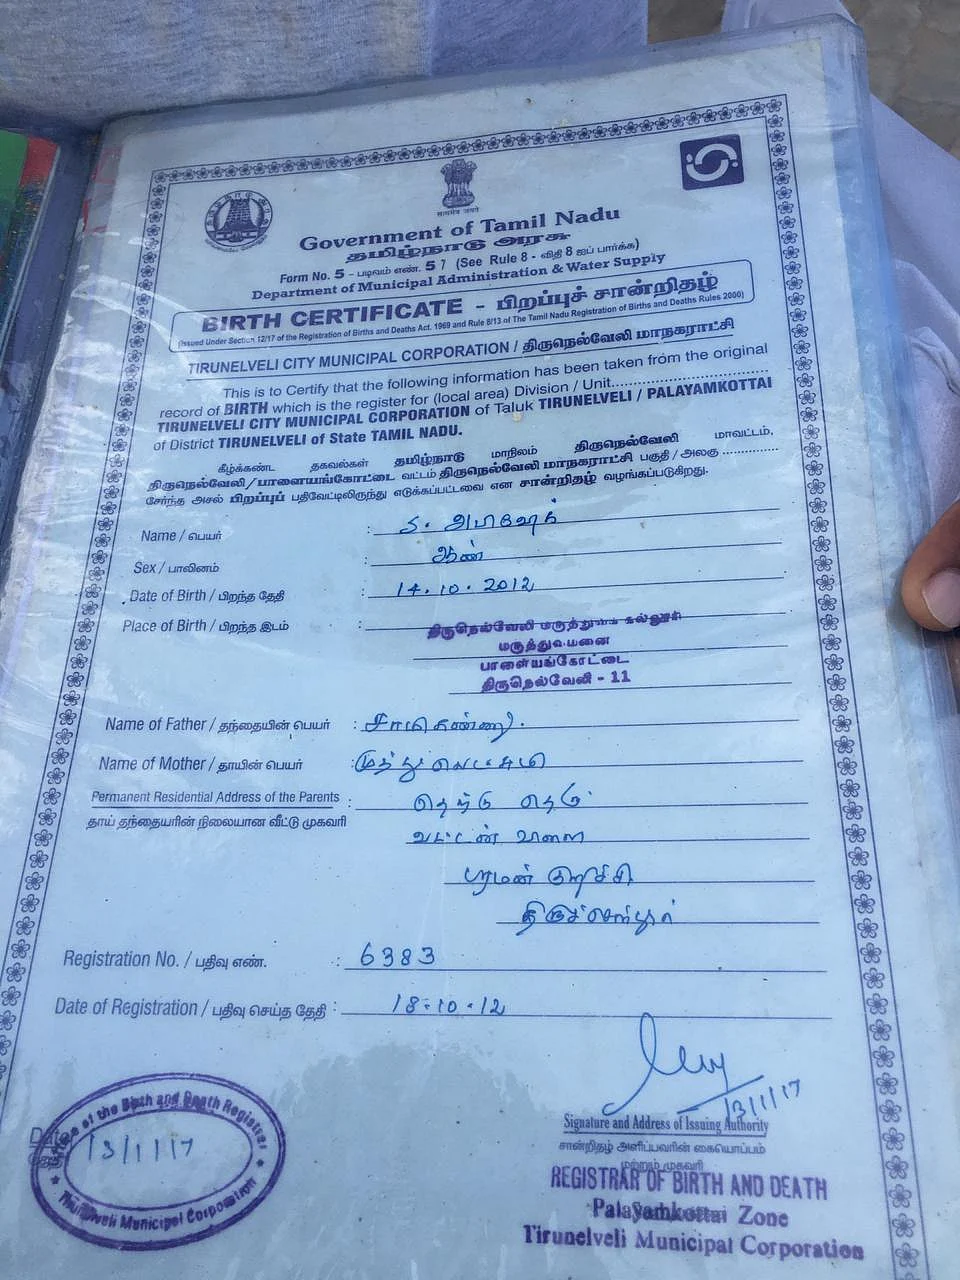 सत्यमेव जयते
Government of Tamil Nadu
தமிழ்நாடு அரசு
Form No. 5 – படிவம் எண். 5 7 (See Rule 8 - விதி 8 ஐப் பார்க்க)
Department of Municipal Administration & Water Supply
BIRTH CERTIFICATE - பிறப்புச் சான்றிதழ்
(Issued Under Section 12/17 of the Registration of Births and Deaths Act. 1969 and Rule 8/13 of The Tamil Nadu Registration of Births and Deaths Rules 2000)
TIRUNELVELI CITY MUNICIPAL CORPORATION / திருநெல்வேலி மாநகராட்சி
This is to Certify that the following information has been taken from the original
record of BIRTH which is the register for (local area) Division / Unit..............................
TIRUNELVELI CITY MUNICIPAL CORPORATION of Taluk TIRUNELVELI / PALAYAMKOTTAI
of District TIRUNELVELI of State TAMIL NADU.
கீழ்க்கண்ட தகவல்கள் தமிழ்நாடு மாநிலம் திருநெல்வேலி மாவட்டம்,
திருநெல்வேலி/பாளையங்கோட்டை வட்டம் திருநெல்வேலி மாநகராட்சி பகுதி / அலகு ..............
சேர்ந்த அசல் பிறப்புப் பதிவேட்டிலிருந்து எடுக்கப்பட்டவை என சான்றிதழ் வழங்கப்படுகிறது.
Name / பெயர் :
Sex / பாலினம் : ஆண்
Date of Birth / பிறந்த தேதி : 14.10.2012
Place of Birth / பிறந்த இடம் : திருநெல்வேலி மருத்துவக் கல்லூரி
மருத்துவமனை
பாளையங்கோட்டை
திருநெல்வேலி - 11
Name of Father / தந்தையின் பெயர் :
Name of Mother / தாயின் பெயர் : முத்துலெட்சுமி
Permanent Residential Address of the Parents : தெற்கு தெரு
தாய் தந்தையரின் நிலையான வீட்டு முகவரி
பரமன் குறிச்சி
திருச்செந்தூர்
Registration No. / பதிவு எண். : 6383
Date of Registration / பதிவு செய்த தேதி : 18.10.12
13/1/17
Signature and Address of Issuing Authority
சான்றிதழ் அளிப்பவரின் கையொப்பம்
மற்றும் முகவரி
REGISTRAR OF BIRTH AND DEATH
Palayamkottai Zone
Tirunelveli Municipal Corporation
Date
Office of the Birth and Death Registrar
13/1/17
Tirunelveli Municipal Corporation